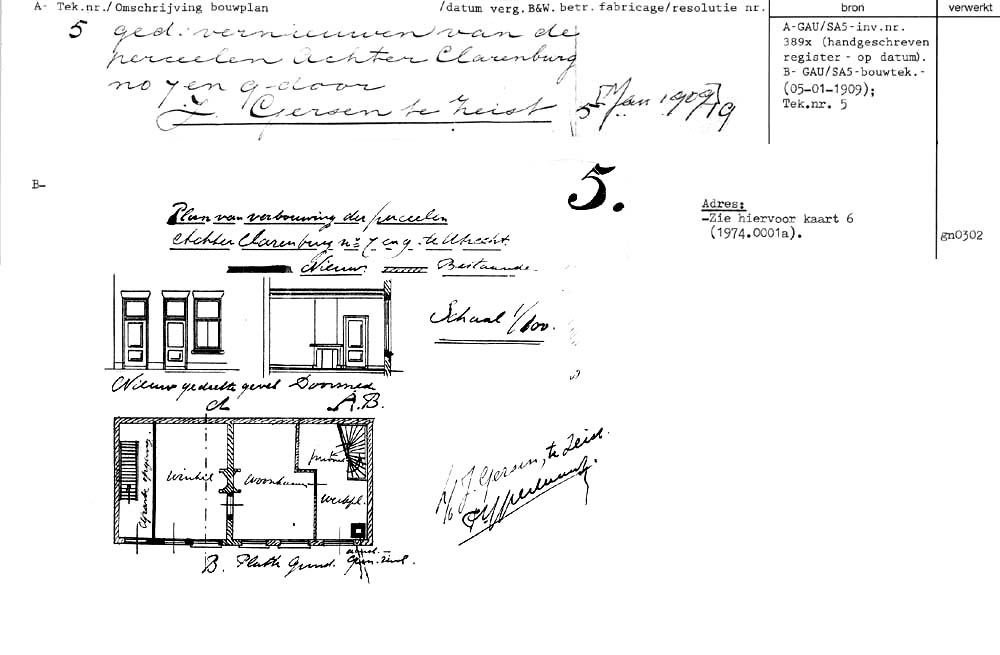 A- Tek.nr./Omschrijving bouwplan /datum verg.B&W. betr. fabricage/resolutie nr.
bron
verwerkt
5 ged. vernieuwen van de
perceelen Achter Clarenburg
no 7 en 9 door
J. Gersen te Zeist 5 Jan 1909/19
A-GAU/SA5-inv.nr.
389x (handgeschreven
register - op datum).
B- GAU/SA5-bouwtek.-
(05-01-1909);
Tek.nr. 5
B-
5.
Adres:
-Zie hiervoor kaart 6
(1974.0001a).
gn0302
Plan van verbouwing der perceelen
Achter Clarenburg no 7 en 9 te Utrecht
Nieuw Bestaande
Schaal 1/100.
Nieuw gedeelte gevel Doorsnee
A.B.
A
Winkel
Woonkamer
Werkpl.
B. Platte Grond.
J. Gersen, te Zeist.